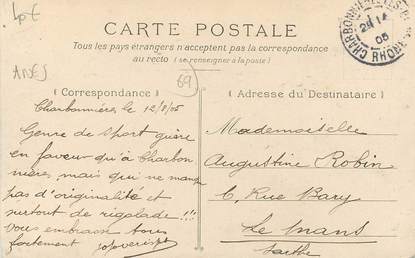 1p€
ANES
69
CARTE POSTALE
Tous les pays étrangers n'acceptent pas la correspondance
au recto (se renseigner à la poste)
Correspondance
Charbonnières, le 12/8/05
Genre de sport guère
en faveur qu'à Charbon
nières, mais qui ne manque
pas d'originalité et
surtout de rigolade !!!
Vous embrasse tous
fortement
Adresse du Destinataire
Mademoiselle
Augustine Robin
6, Rue Bary
Le Mans
Sarthe
CHARBONNIÈRES-LES-B
05
RHÔNE